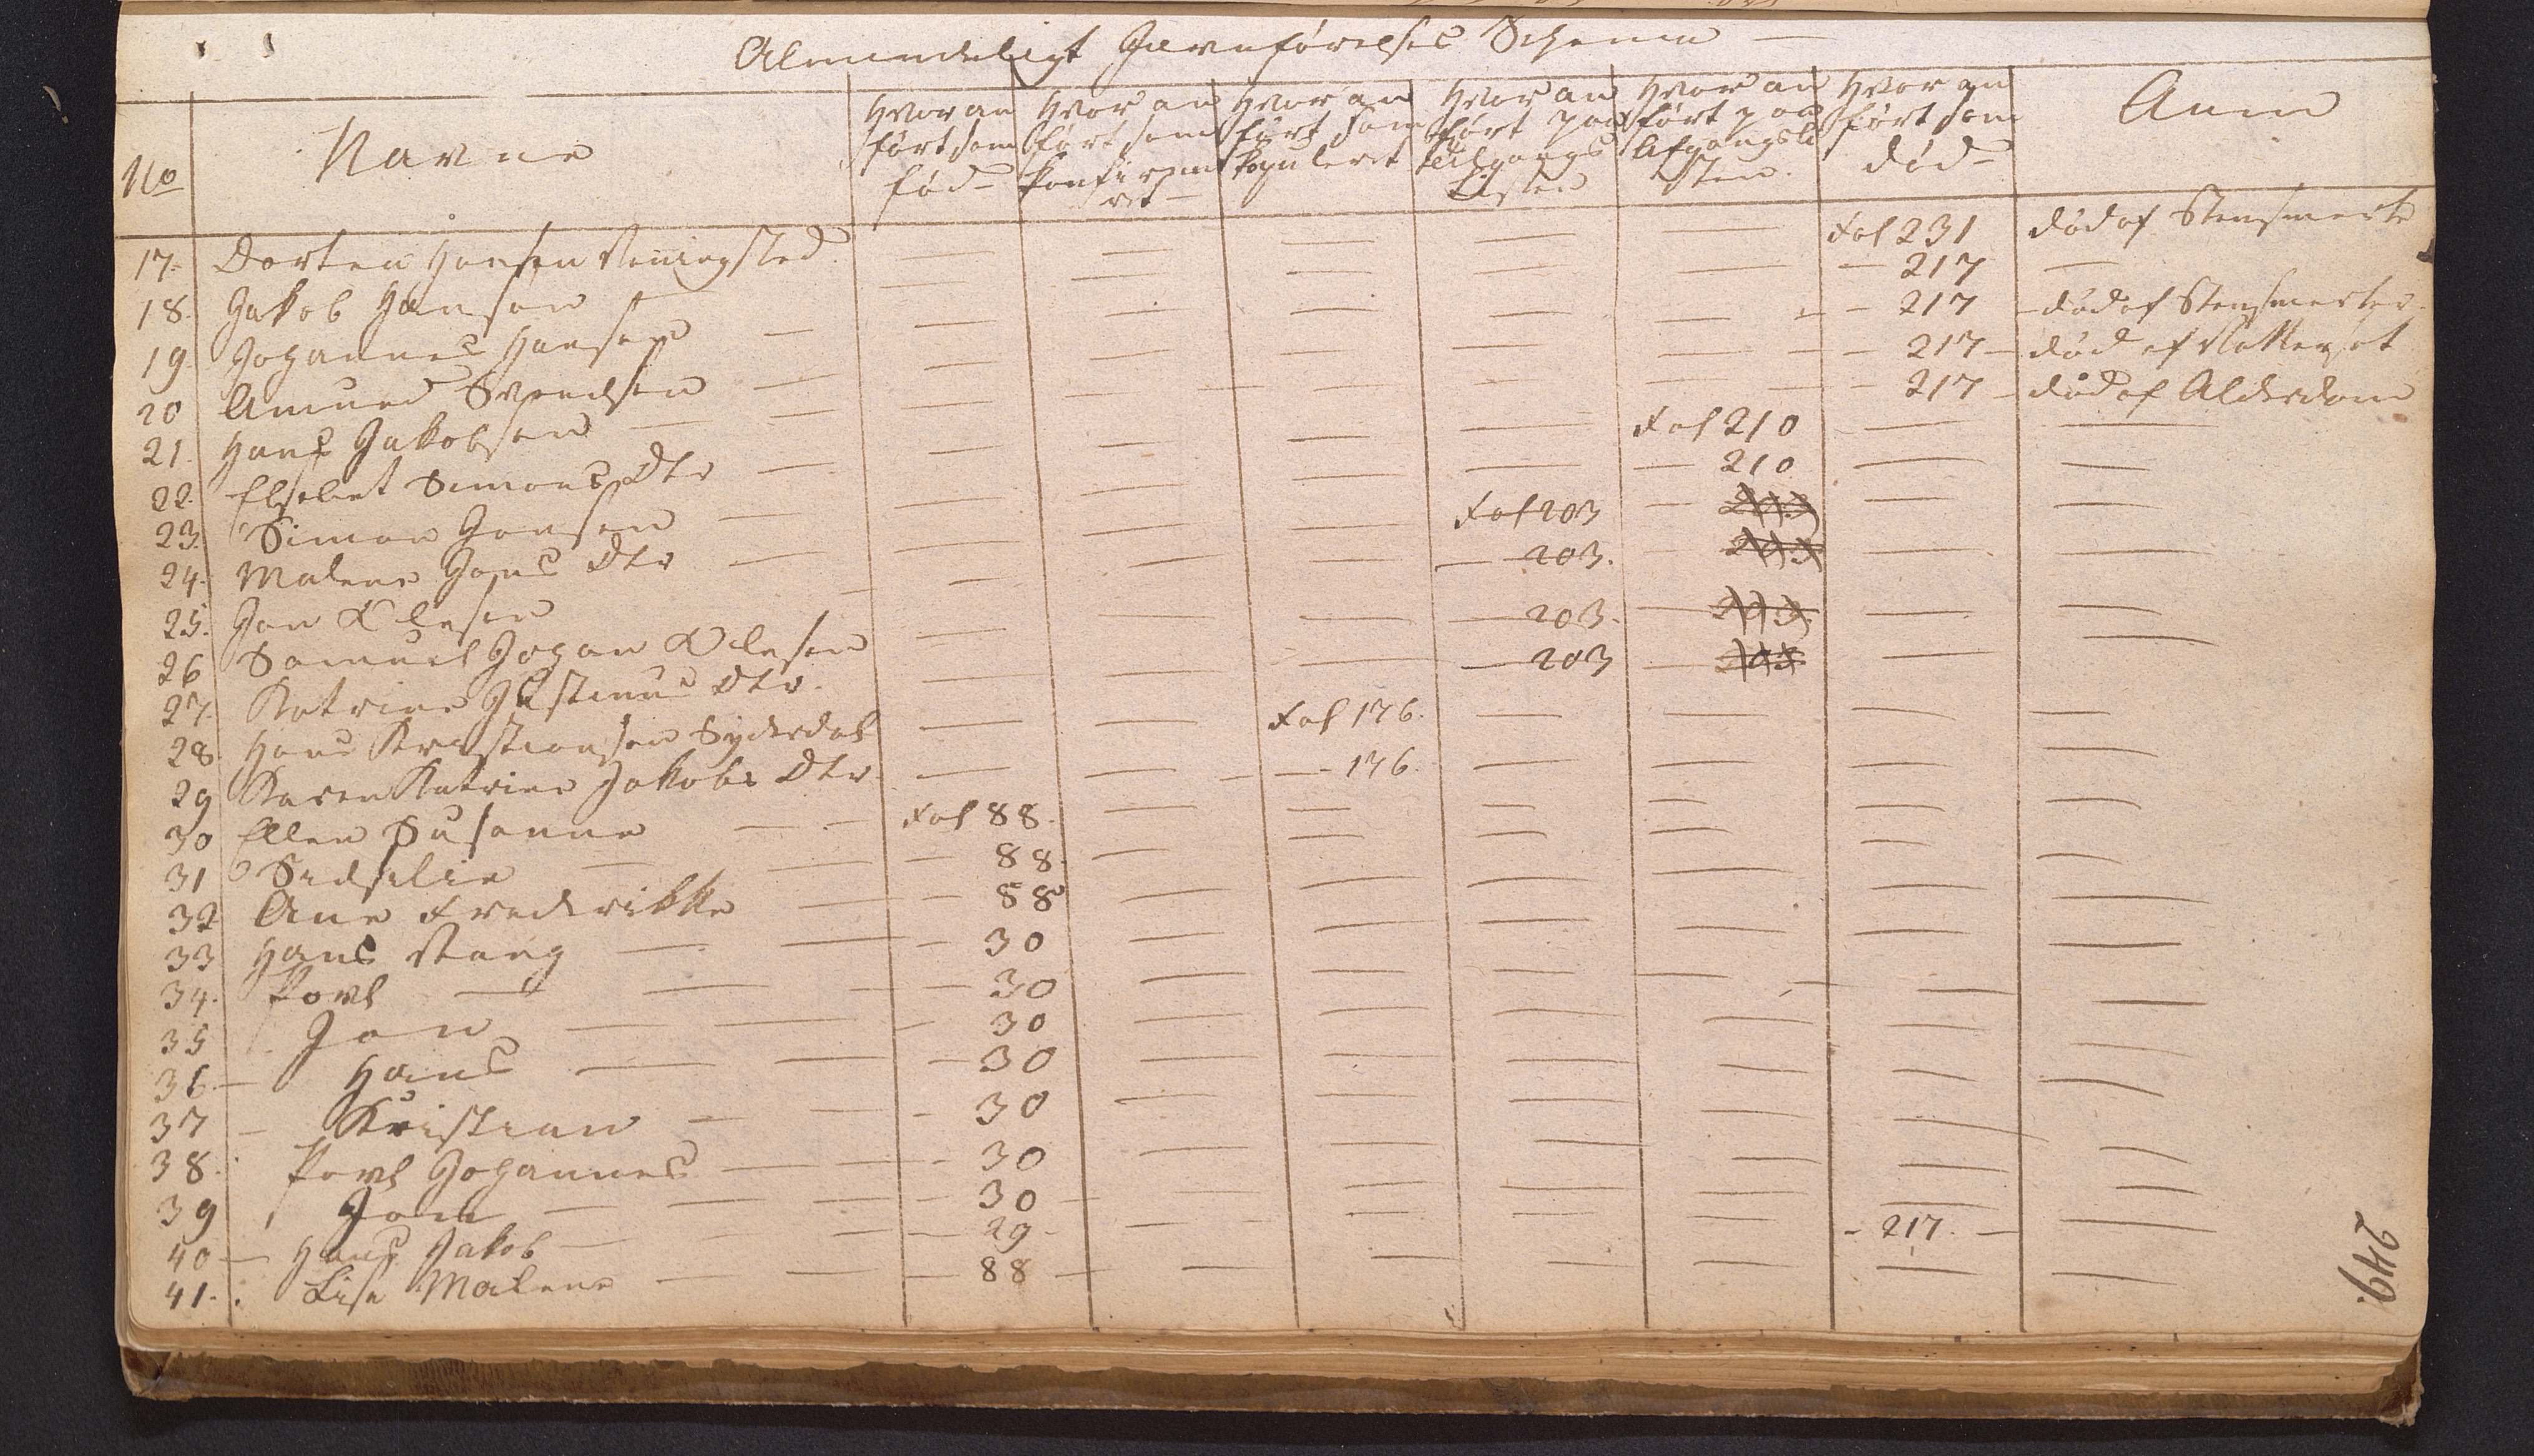 Almindeligt Jævnførelses Schema
No Navne Hvor anført som fød Hvor anført som konfirmeret Hvor anført som kopuleret Hvor anført paa tilgangs Listen Hvor anført paa Afgangslisten Hvor anført som død Anm
17. Dorten Hansen Fol 231 død af
18. Jakob Hansen — 217 —
19 Johannes Hansen — 217 — død af
20 Amund Svendsen — 217 — død af
21. Hans Jakobsen — 217 — død af Alderdom
22. Elsebet Simons Dtr Fol 210
23. Simon Jonsen — 210
24. Malene Jons Dtr Fol 203 — 203
25. Jon Olesen — 203. — 203
26 Samuel Johan Olesen — 203. — 203
27. Katrine Justinus Dtr. — 203 — 203
28. Hans Kristiansen Syderdal Fol 176.
29 Karen Katrine Jakobs Dtr — 176.
30 Ellen Susanne Fol 88.
31 Sidselie — 88.
32 Ane Frederikke — 88
33 Hans — 30
34. Povl — 30
35 Jon — 30
36. — Hans — 30
37 — Kristian — 30
38. Povl Johannes — 30
39 Jon — 30
40 — Hans Jakob — 29 — 217. —
41. Lise Malene — 88
249.